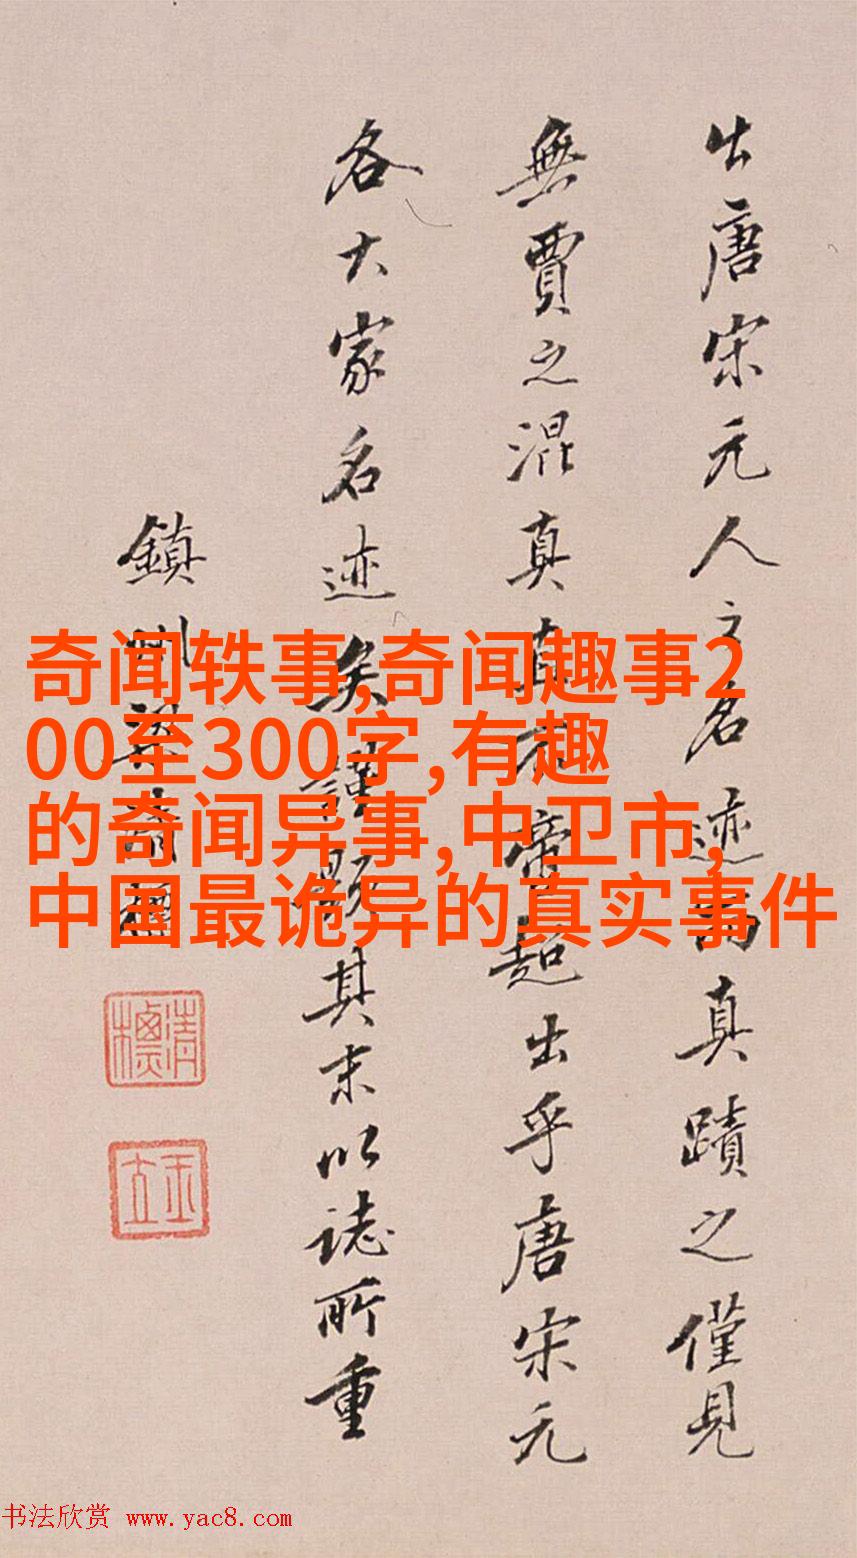 出唐宋元人之名迹真蹟之僅見
無賈之混真超出乎唐宋元
各大家名迹矣謹題其末以誌所重
鎮州梁清標
清標
玉立
奇闻轶事,奇闻趣事2
00至300字,有趣
的奇闻异事,中卫市,
中国最诡异的真实事件
书法欣赏 www.yac8.com